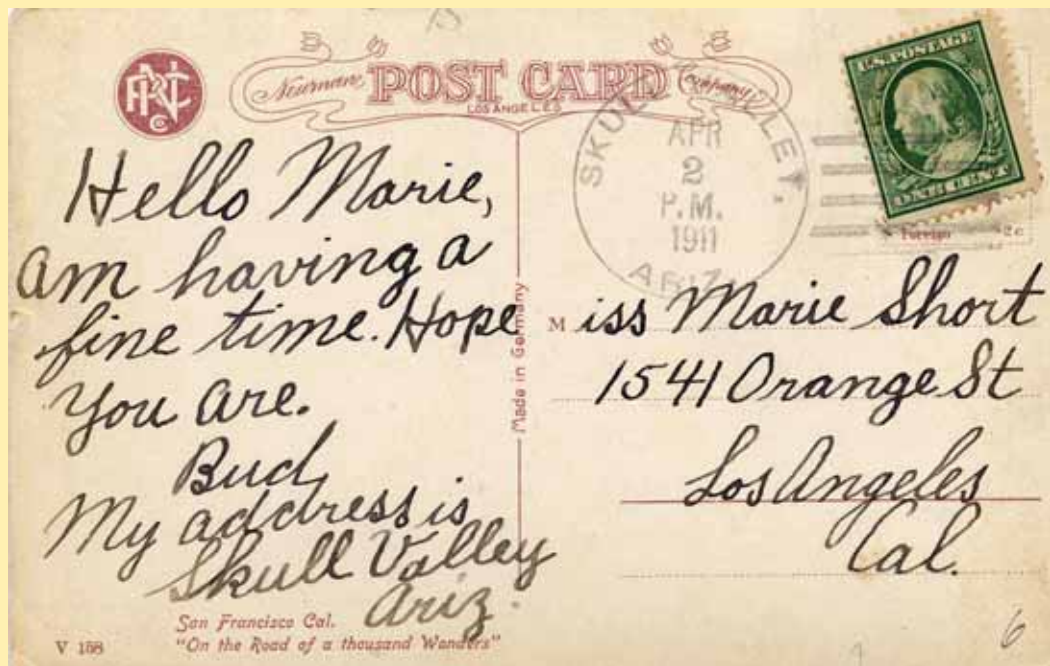 Newman POST CARD Company
LOS ANGELES
U.S. POSTAGE
ONE CENT
SKULL VALLEY.
APR
2
P.M.
1911
ARIZ.
Foreign 2c
Hello Marie,
am having a
fine time. Hope
you are.
Bud,
My address is
Skull Valley
Ariz.
Made in Germany
Miss Marie Short
1541 Orange St
Los Angeles
Cal.
San Francisco Cal.
V 158 "On the Road of a thousand Wonders"
6